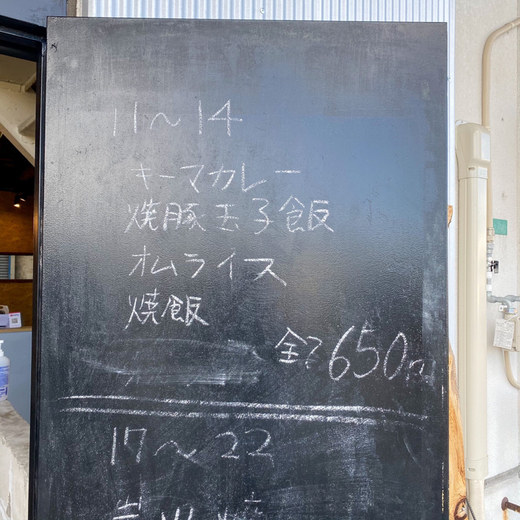 11～14
キーマカレー
焼豚玉子飯
オムライス
焼飯
全て650円
17～22